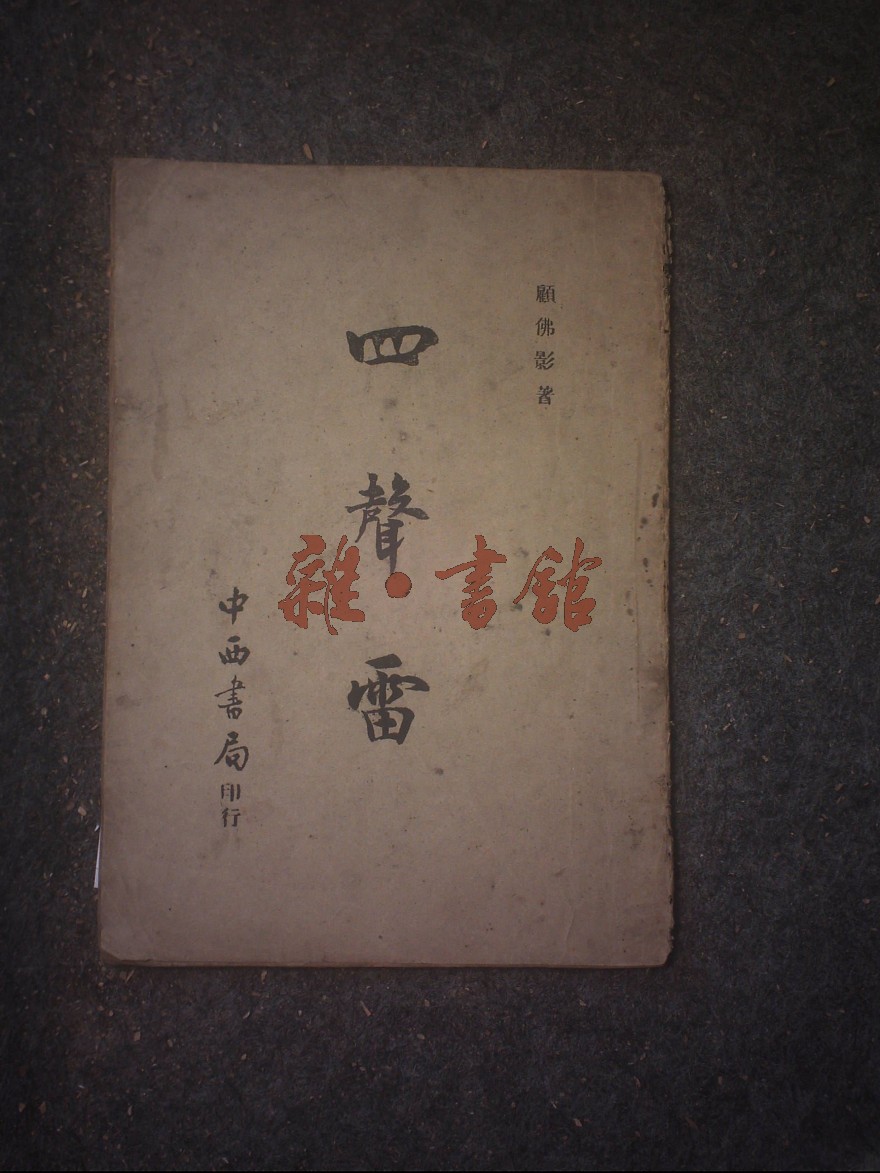 顧佛影著
四聲雷
中西書局印行
雜·書館